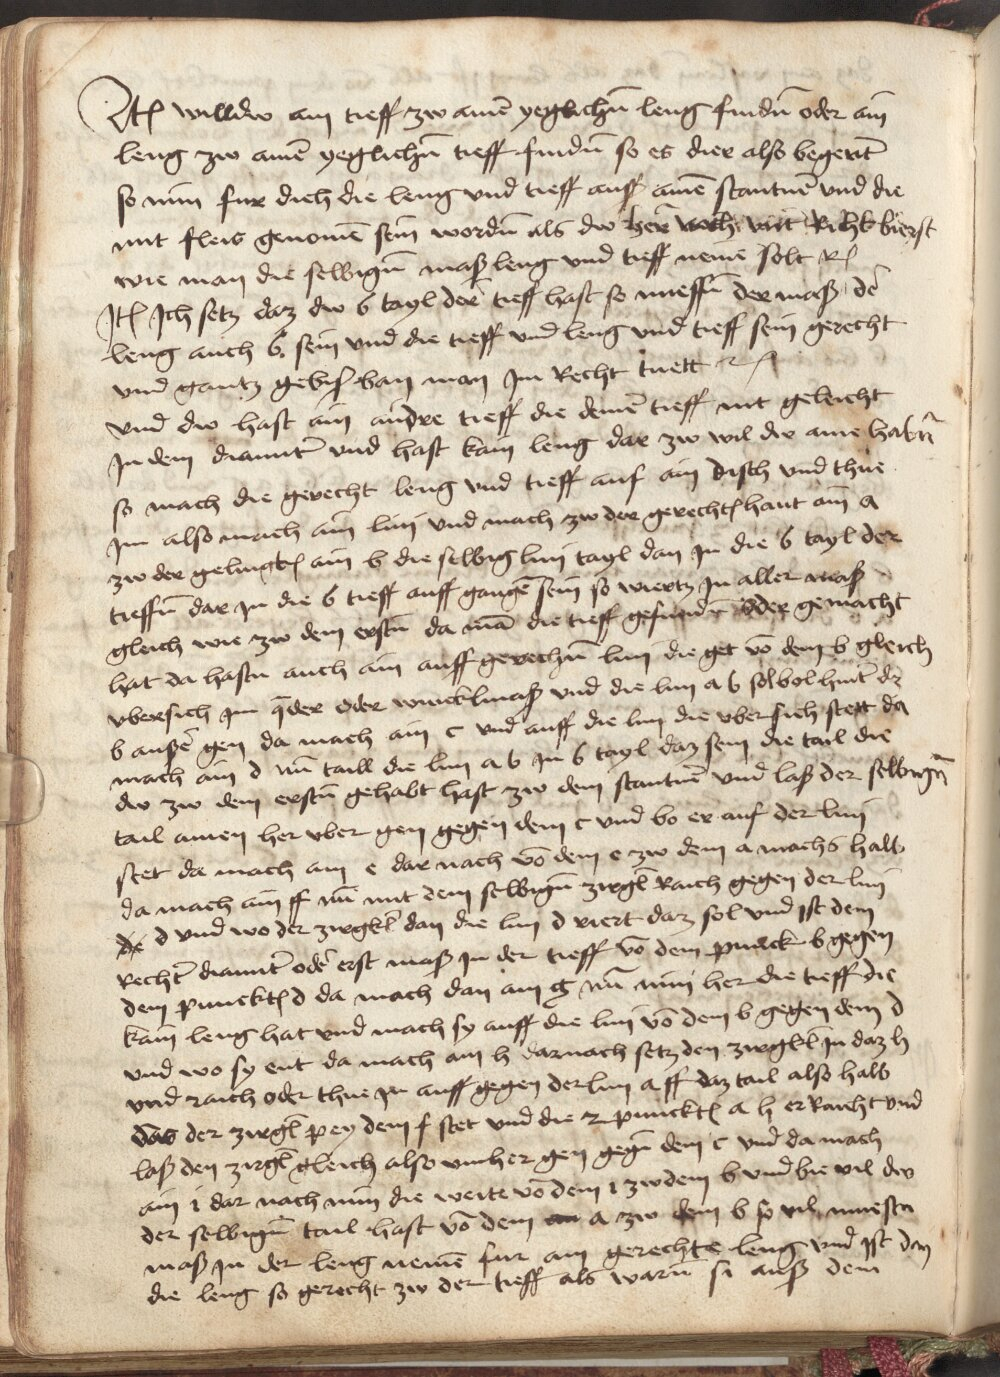 Itē willdw ain tieff zw ainē yeglichn̄ leng findn̄ oder ain
leng zw ainē yeglichn̄ tieff findn̄ so es dier also begert
so nim fur dich die leng vnd tieff auss ainē stantnē vnd die
mit fleis genomē sein wordn̄ als dw her noch vnt Richt bierst
wie man die selbign̄ mass leng vnd tieff nemē solt
Itē Ich setz daz dw 6 tayl der tieff hast so muessn̄ der mass dē
leng auch 6 sein vnd die tieff vnd leng vnd tieff sein gerecht
vnd gantz gebis ban man Im Recht tuett
vnd dw hast ain andre tieff die deinē tieff nit geleicht
In dem diamitr̄ vnd hast kain leng dar zw wil dw aine habn̄
so mach die gerecht leng vnd tieff auf ain disch vnd thue
Im also mach ain lini vnd mach zw der gerechtē hant ain a
zw der gelingkē ain b die selbig lini tayl dan In die 6 tayl der
tieffn̄ dar In die 6 tieff auff gangē sein so wiertz In aller mass
gleich wie zw dem erstn̄ da mā die tieff gefundn̄ oder gemacht
hat da hastu auch ain auff gerechn̄ lini die get vō dem b gleich
vbersich Im qder oder winckelmass vnd die lini a b sol bol hintr̄ dz
b aussē gen da mach ain c vnd auff die lini die vber sich stett da
mach ain d nū taill die lini a b In 6 tayl daz sein die tail die
dw zw dem erstn̄ gehabt hast zw dem stantnē vnd lass der selbign̄
tail ainen her vber gen gegen dem c vnd bo er auf der lini
stet da mach ain e dar nach vō dem e zw dem a machs halb
da mach ain ff nū mit dem selbign̄ zirgkl Raich gegen der lini
d vnd wo der zirgkl dan die lini d riert daz sol vnd ist dem
Rechtr̄ diamitr̄ oder erst mass In der tieff vō dem punck b gegen
dem punckt d da mach dan ain g nū nim her die tieff die
kain leng hat vnd mach sy auff die lini vō dem b gegen dem d
vnd wo sy ent da mach ain h darnach setz den zirgkl In daz h
vnd raich oder thue In auff gegen der lini a ff daz tail also halb
das der zirgkl pey dem f stet vnd die 2 punckt a h erRaicht vnd
lass den zirgkl gleich also vmher gen gegn̄ dem c vnd da mach
ain i dar nach nim die weite vō dem i zw dem b vnd bie vil dw
der selbign̄ tail hast vō dem a zw dem b so vil muestu
mass In der leng nemē fur ain gerechte leng vnd ist dan
die leng so gerecht zw der tieff als warn̄ si auss dem